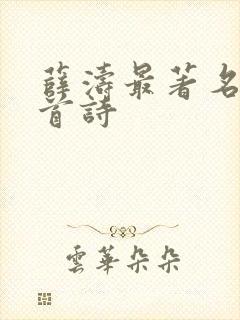 薛濤最著名
首詩
雲華朵朵